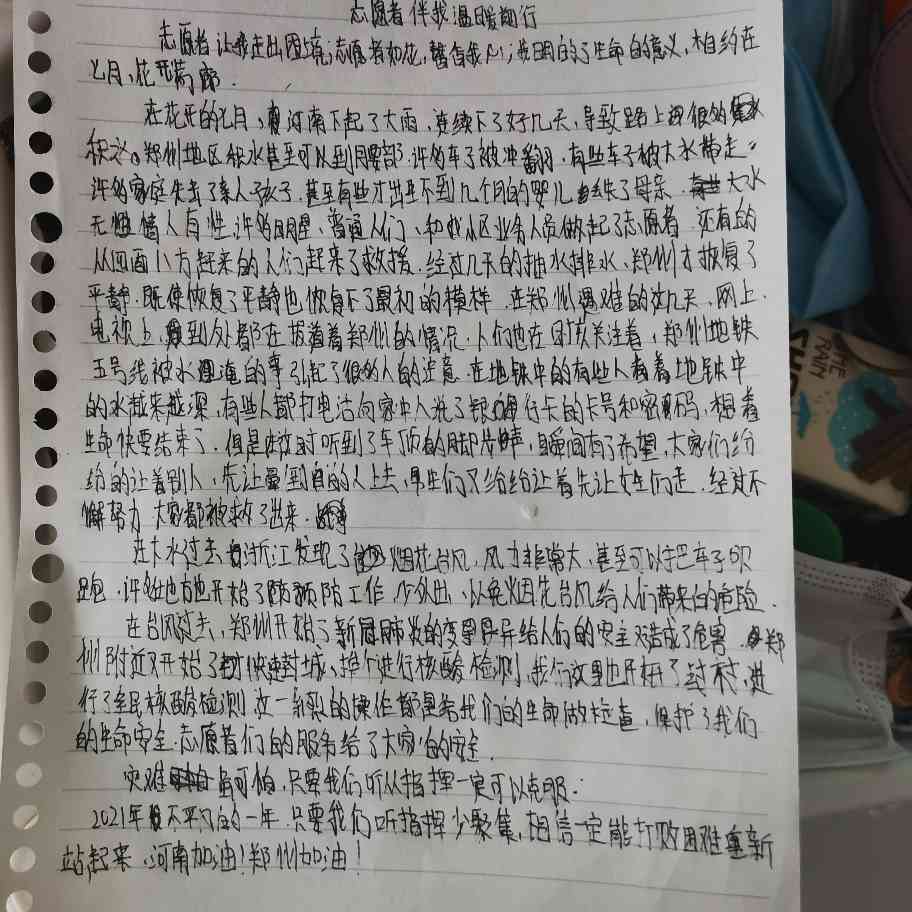 志愿者伴我温暖前行
志愿者让我走出困境,志愿者如花,馨香我心;我明白了生命的意义,相约在
七月,花开满廊.
在花开的七月,河南下起了大雨,连续下了好几天,导致路上很多
积水。郑州地区积水甚至可以到腰部.许多车子被冲翻,有些车子被大水带走。
许多家庭失去了亲人孩子.甚至有些才出生不到几个月的婴儿失了母亲.大水
无情人有性.许多明星、普通人们、和我小区业务人员做起了志愿者.还有的
从四面八方赶来的人们起来了救援.经过几天的抽水排水、郑州才恢复了
平静.既使恢复了平静也恢复不了最初的模样.在郑州遇难的这几天、网上、
电视上,到处都在报着郑州的情况.人们也在时放关注着,郑州地铁
五号线被水淹的事引起了很多人的注意.在地铁中的有些人看着地铁中
的水越来越深,有些人都打电话向家中人说了银行卡的卡号和密码,想着
生命快要结束了.但是这时听到了车顶的脚步声,瞬间有了希望,大家们纷
纷的让着别人,先让晕到的人上去,男生们又纷纷让着先让女生们走.经过不
懈努力 大家都被救了出来.
在大水过去,浙江发现了烟花台风,风力非常大,甚至可以把车子吹
跑.许多地方也开始了预防工作 少外出、以免因为台风给人们带来的危险.
在台风过去,郑州开始了新冠肺炎的变异给人们的安全又造成了危害.郑
州附近又开始了快速封城、挨个进行核酸检测,我们这里也开始了封村,进
行了全民核酸检测 这一系列的操作都是给我们的生命做检查,保护了我们
的生命安全.志愿者们的服务给了大家的安全.
灾难虽可怕,只要我们听从指挥一定可以克服.
2021年不平凡的一年.只要我们听指挥少聚集,相信一定能打败困难重新
站起来,河南加油!郑州加油!